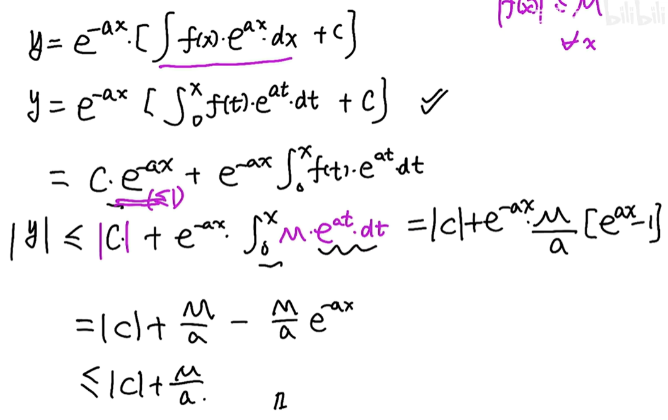 |f(x)| ≤ M
∀x
bilibili
y = e^{-ax}·[∫f(x)·e^{ax}·dx + C]
y = e^{-ax} [∫_0^x f(t)·e^{at}·dt + C] ✓
= C·e^{-ax} + e^{-ax} ∫_0^x f(t)·e^{at}dt
(≤1)
|y| ≤ |C·| + e^{-ax}· ∫_0^x M·e^{at}·dt = |c| + e^{-ax}·\frac{M}{a} [e^{ax}-1]
= |c| + \frac{M}{a} - \frac{M}{a} e^{-ax}
≤ |c| + \frac{M}{a}.